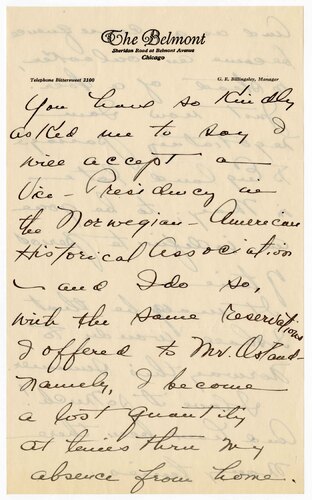 The Belmont
Sheridan Road at Belmont Avenue
Chicago
Telephone Bittersweet 2100
G. E. Billingsley, Manager
You have so kindly
asked me to say I
will accept a
Vice-Presidency in
the Norwegian-American
Historical Association
- and I do so,
with the same reservations
I offered to Mr. Ostand-
namely, I become
a lost quantity
at times thru my
absence from home.